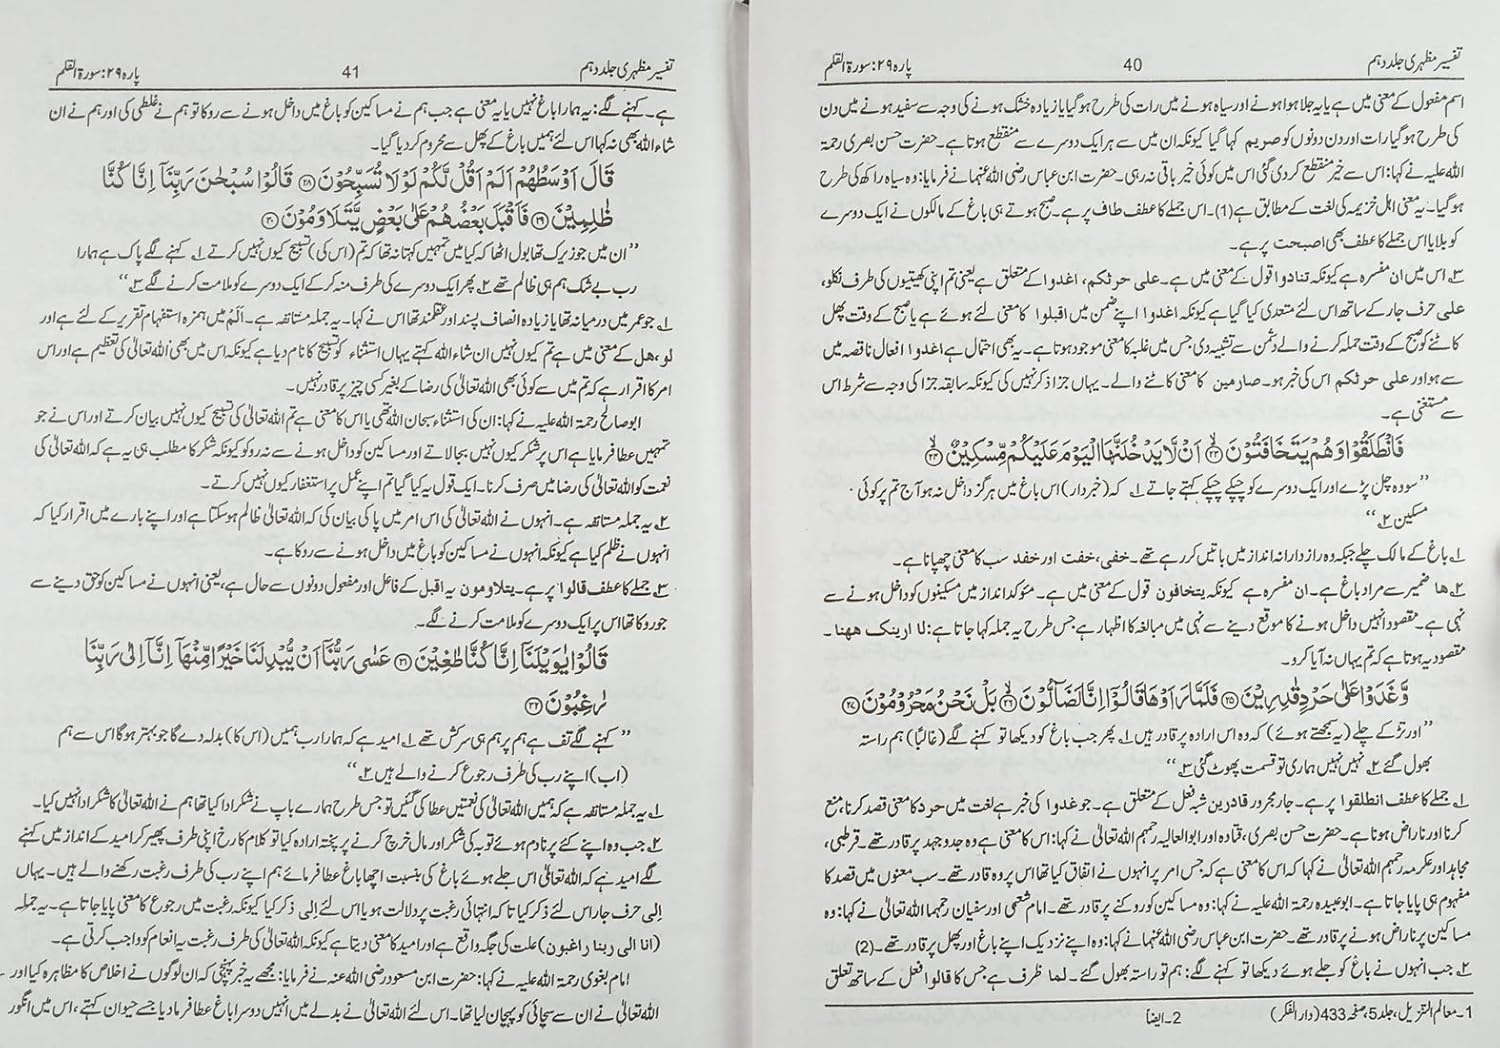 تفسیر مظہری جلد دہم 40 پارہ ۲۹: سورۃ القلم
اسم مفعول کے معنی میں ہے یا یہ جلا ہوا ہونے اور سیاہ ہونے میں رات کی طرح ہو گیا یا زیادہ خشک ہونے کی وجہ سے سفید ہونے میں دن
کی طرح ہو گیا رات اور دن دونوں کو صریم کہا گیا کیونکہ ان میں سے ہر ایک دوسرے سے منقطع ہوتا ہے۔ حضرت حسن بصری رحمۃ
اللہ علیہ نے کہا: اس سے خیر منقطع کر دی گئی اس میں کوئی خیر باقی نہ رہی۔ حضرت ابن عباس رضی اللہ عنہما نے فرمایا: وہ سیاہ راکھ کی طرح
ہو گیا۔ یہ معنی اہل خزیمہ کی لغت کے مطابق ہے (1)۔ اس جملے کا عطف طاف پر ہے۔ صبح ہوتے ہی باغ کے مالکوں نے ایک دوسرے
کو بلایا اس جملے کا عطف بھی اصبحت پر ہے۔
۳؎ اس میں ان مفسرہ ہے کیونکہ تنادوا قول کے معنی میں ہے۔ علی حرثکم، اغدوا کے متعلق ہے یعنی تم اپنی کھیتیوں کی طرف نکلو،
علی حرف جار کے ساتھ اس لئے متعدی کیا گیا ہے کیونکہ اغدوا اپنے ضمن میں اقبلوا کا معنی لئے ہوئے ہے یا صبح کے وقت پھل
کاٹنے کو صبح کے وقت حملہ کرنے والے دشمن سے تشبیہ دی جس میں غلبہ کا معنی موجود ہوتا ہے۔ یہ بھی احتمال ہے اغدوا افعال ناقصہ میں
سے ہو اور علی حرثکم اس کی خبر ہو۔ صارمین کا معنی کاٹنے والے۔ یہاں جزا ذکر نہیں کی کیونکہ سابقہ جزا کی وجہ سے شرط اس
سے مستغنی ہے۔
فَانْطَلَقُوْا وَهُمْ يَتَخَافَتُوْنَ ﴿۲۳﴾ اَنْ لَّا يَدْخُلَنَّهَا الْيَوْمَ عَلَيْكُمْ مِّسْكِيْنٌ ﴿۲۴﴾
”سو وہ چل پڑے اور ایک دوسرے کو چپکے چپکے کہتے جاتے ۱؎ کہ (خبردار) اس باغ میں ہرگز داخل نہ ہو آج تم پر کوئی
مسکین ۲؎ “
۱؎ باغ کے مالک چلے جبکہ وہ رازدارانہ انداز میں باتیں کر رہے تھے۔ خفی، خفت اور خفد سب کا معنی چھپانا ہے۔
۲؎ ھا ضمیر سے مراد باغ ہے۔ ان مفسرہ ہے کیونکہ یتخافون قول کے معنی میں ہے۔ مئوکد انداز میں مسکینوں کو داخل ہونے سے
نہی ہے۔ مقصود انہیں داخل ہونے کا موقع دینے سے نہی میں مبالغہ کا اظہار ہے جس طرح یہ جملہ کہا جاتا ہے: لا ارینک ھھنا۔
مقصود یہ ہوتا ہے کہ تم یہاں نہ آیا کرو۔
وَّغَدَوْا عَلٰى حَرْدٍ قٰدِرِيْنَ ﴿۲۵﴾ فَلَمَّا رَاَوْهَا قَالُوْٓا اِنَّا لَضَآلُّوْنَ ﴿۲۶﴾ بَلْ نَحْنُ مَحْرُوْمُوْنَ ﴿۲۷﴾
”اور تڑکے چلے (یہ سمجھتے ہوئے) کہ وہ اس ارادہ پر قادر ہیں ۱؎ پھر جب باغ کو دیکھا تو کہنے لگے (غالبًا) ہم راستہ
بھول گئے ۲؎ نہیں نہیں ہماری تو قسمت پھوٹ گئی ۳؎ “
۱؎ جملے کا عطف انطلقوا پر ہے۔ جار مجرور قادرین شبہ فعل کے متعلق ہے۔ جو غدوا کی خبر ہے لغت میں حرد کا معنی قصد کرنا، منع
کرنا اور ناراض ہونا ہے۔ حضرت حسن بصری، قتادہ اور ابو العالیہ رحمہم اللہ تعالیٰ نے کہا: اس کا معنی ہے وہ جدوجہد پر قادر تھے۔ قرطبی،
مجاہد اور عکرمہ رحمہم اللہ تعالیٰ نے کہا کہ اس کا معنی ہے کہ جس امر پر انہوں نے اتفاق کیا تھا اس پر وہ قادر تھے۔ سب معنوں میں قصد کا
مفہوم ہی پایا جاتا ہے۔ ابو عبیدہ رحمۃ اللہ علیہ نے کہا: وہ مساکین کو روکنے پر قادر تھے۔ امام شعبی اور سفیان رحمہما اللہ تعالیٰ نے کہا: وہ
مساکین پر ناراض ہونے پر قادر تھے۔ حضرت ابن عباس رضی اللہ عنہما نے کہا: وہ اپنے نزدیک اپنے باغ اور پھل پر قادر تھے۔ (2)
۲؎ جب انہوں نے باغ کو جلے ہوئے دیکھا تو کہنے لگے: ہم تو راستہ بھول گئے۔ لما ظرف ہے جس کا قالوا فعل کے ساتھ تعلق
1۔ معالم التنزیل، جلد 5، صفحہ 433 (دار الفکر) 2۔ ایضاً
تفسیر مظہری جلد دہم 41 پارہ ۲۹: سورۃ القلم
ہے۔ کہنے لگے: یہ ہمارا باغ نہیں یا یہ معنی ہے جب ہم نے مساکین کو باغ میں داخل ہونے سے روکا تو ہم نے غلطی کی اور ہم نے ان
شاء اللہ بھی نہ کہا اس لئے ہمیں باغ کے پھل سے محروم کر دیا گیا۔
قَالَ اَوْسَطُهُمْ اَلَمْ اَقُلْ لَّكُمْ لَوْلَا تُسَبِّحُوْنَ ﴿۲۸﴾ قَالُوْا سُبْحٰنَ رَبِّنَآ اِنَّا كُنَّا
ظٰلِمِيْنَ ﴿۲۹﴾ فَاَقْبَلَ بَعْضُهُمْ عَلٰى بَعْضٍ يَّتَلَاوَمُوْنَ ﴿۳۰﴾
”ان میں جو زیرک تھا بول اٹھا کہ کیا میں تمہیں کہتا نہ تھا کہ تم (اس کی) تسبیح کیوں نہیں کرتے ۱؎ کہنے لگے پاک ہے ہمارا
رب بے شک ہم ہی ظالم تھے ۲؎ پھر ایک دوسرے کی طرف منہ کر کے ایک دوسرے کو ملامت کرنے لگے ۳؎ “
۱؎ جو عمر میں درمیانہ تھا یا زیادہ انصاف پسند اور عقلمند تھا اس نے کہا۔ یہ جملہ مستانفہ ہے۔ الَمْ میں ہمزہ استفہام تقریر کے لئے ہے اور
لو، ھل کے معنی میں ہے تم کیوں نہیں ان شاء اللہ کہتے یہاں استثناء کو تسبیح کا نام دیا ہے کیونکہ اس میں بھی اللہ تعالیٰ کی تعظیم ہے اور اس
امر کا اقرار ہے کہ تم میں سے کوئی بھی اللہ تعالیٰ کی رضا کے بغیر کسی چیز پر قادر نہیں۔
ابو صالح رحمۃ اللہ علیہ نے کہا: ان کی استثناء سبحان اللہ تھی یا اس کا معنی ہے تم اللہ تعالیٰ کی تسبیح کیوں نہیں بیان کرتے اور اس نے جو
تمہیں عطا فرمایا ہے اس پر شکر کیوں نہیں بجا لاتے اور مساکین کو داخل ہونے سے نہ روکو کیونکہ شکر کا مطلب ہی یہ ہے کہ اللہ تعالیٰ کی
نعمت کو اللہ تعالیٰ کی رضا میں صرف کرنا۔ ایک قول یہ کیا گیا تم اپنے عمل پر استغفار کیوں نہیں کرتے۔
۲؎ یہ جملہ مستانفہ ہے۔ انہوں نے اللہ تعالیٰ کی اس امر میں پاکی بیان کی کہ اللہ تعالیٰ ظالم ہو سکتا ہے اور اپنے بارے میں اقرار کیا کہ
انہوں نے ظلم کیا ہے کیونکہ انہوں نے مساکین کو باغ میں داخل ہونے سے روکا ہے۔
۳؎ جملے کا عطف قالوا پر ہے۔ یتلاومون یہ اقبل کے فاعل اور مفعول دونوں سے حال ہے، یعنی انہوں نے مساکین کو حق دینے سے
جو روکا تھا اس پر ایک دوسرے کو ملامت کرنے لگے۔
قَالُوْا يٰوَيْلَنَآ اِنَّا كُنَّا طٰغِيْنَ ﴿۳۱﴾ عَسٰى رَبُّنَآ اَنْ يُّبْدِلَنَا خَيْرًا مِّنْهَآ اِنَّآ اِلٰى رَبِّنَا
رٰغِبُوْنَ ﴿۳۲﴾
”کہنے لگے تف ہے ہم پر ہم ہی سرکش تھے ۱؎ امید ہے کہ ہمارا رب ہمیں (اس کا) بدلہ دے گا جو بہتر ہوگا اس سے ہم
(اب) اپنے رب کی طرف رجوع کرنے والے ہیں ۲؎ “
۱؎ یہ جملہ مستانفہ ہے کہ ہمیں اللہ تعالیٰ کی نعمتیں عطا کی گئیں تو جس طرح ہمارے باپ نے شکر ادا کیا تھا ہم نے اللہ تعالیٰ کا شکر ادا نہیں کیا۔
۲؎ جب وہ اپنے کئے پر نادم ہوئے توبہ کی شکر اور مال خرچ کرنے پر پختہ ارادہ کیا تو کلام کا رخ اپنی طرف پھیر کر امید کے انداز میں کہنے
لگے امید ہے کہ اللہ تعالیٰ اس جلے ہوئے باغ کی بنسبت اچھا باغ عطا فرمائے ہم اپنے رب کی طرف رغبت رکھنے والے ہیں۔ یہاں
اِلٰی حرف جار اس لئے ذکر کیا تا کہ انتہائی رغبت پر دلالت ہو یا اس لئے اِلٰی ذکر کیا کیونکہ رغبت میں رجوع کا معنی پایا جاتا ہے۔ یہ جملہ
(انا الی ربنا راغبون) علت کی جگہ واقع ہے اور امید کا معنی دیتا ہے کیونکہ اللہ تعالیٰ کی طرف رغبت یہ انعام کو واجب کرتی ہے۔
امام بغوی رحمۃ اللہ علیہ نے کہا: حضرت ابن مسعود رضی اللہ عنہ نے فرمایا: مجھے یہ خبر پہنچی کہ ان لوگوں نے اخلاص کا مظاہرہ کیا اور
اللہ تعالیٰ نے ان سے سچائی کو پہچان لیا تھا۔ اس لئے اللہ تعالیٰ نے بدلے میں انہیں دوسرا باغ عطا فرما دیا جسے حیوان کہتے، اس میں انگور